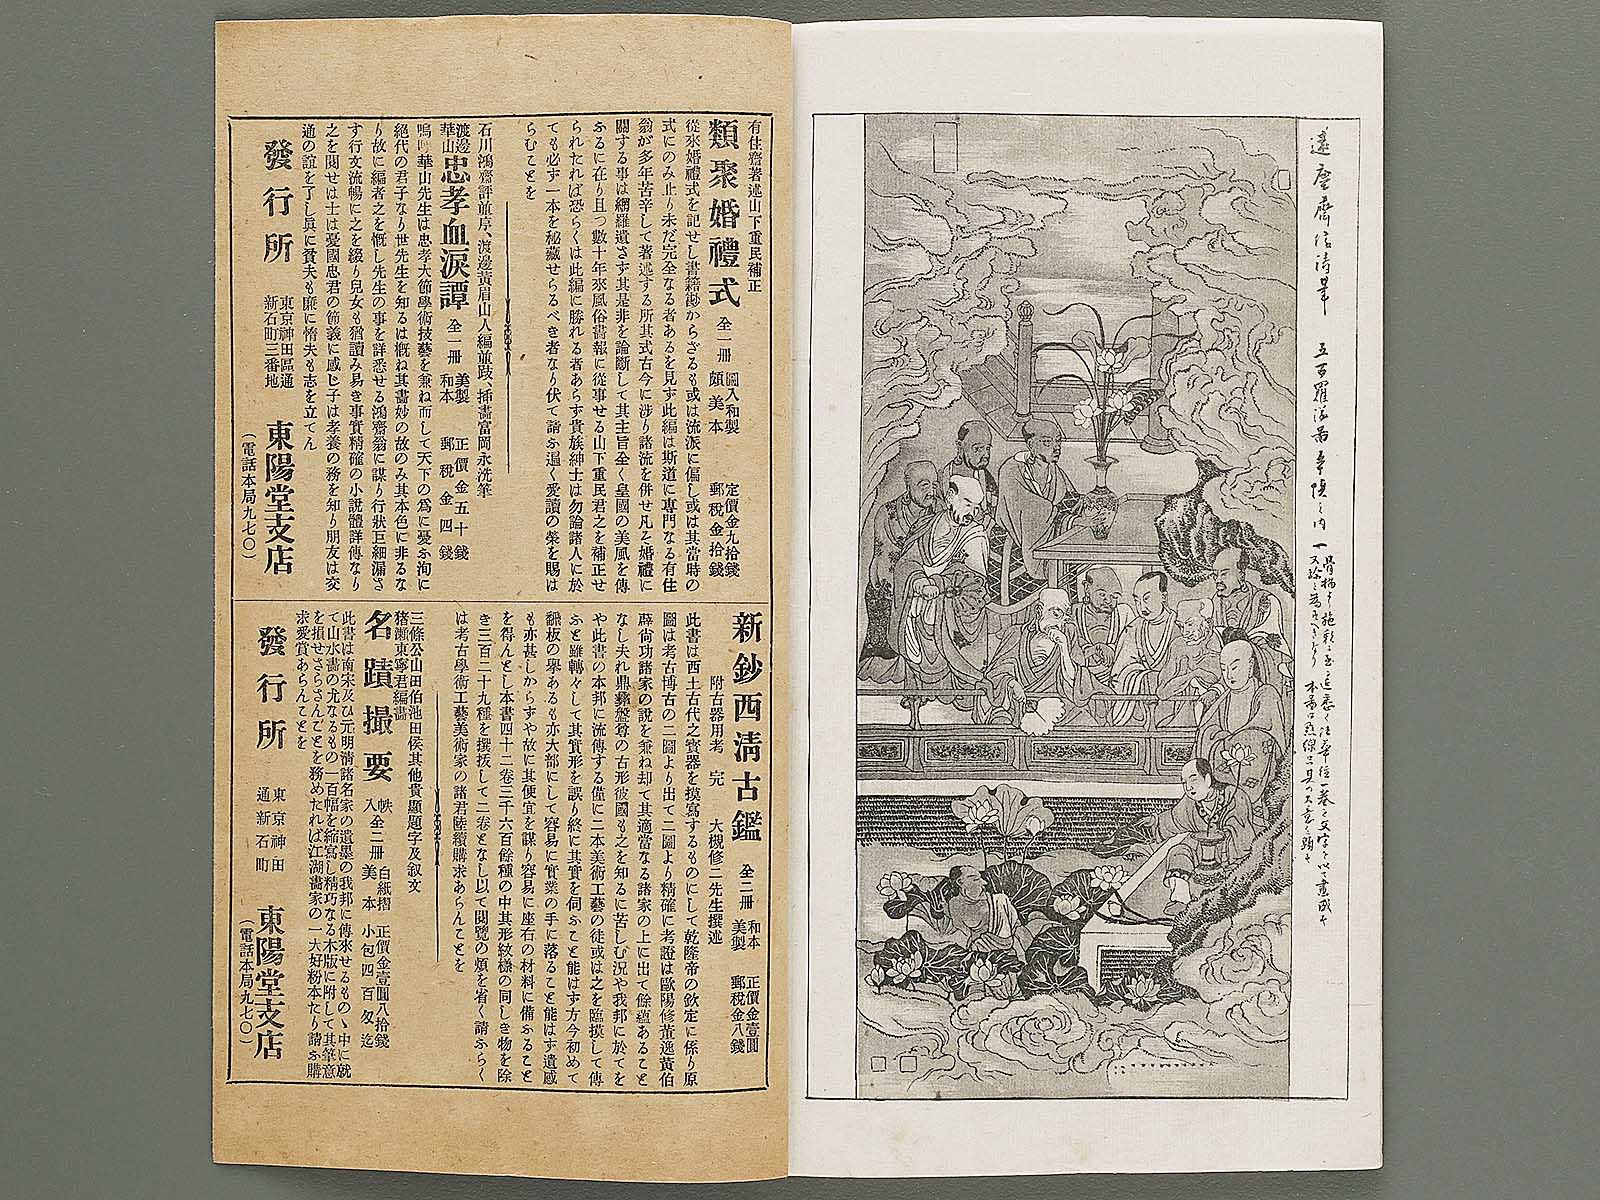 有住齋著述山下重民補正
類聚婚禮式 全一冊 圖入和製 頗美本 定價金九拾錢 郵税金拾錢
從來婚禮式を記せし書籍尠からざるも或は流派に偏し或は其當時の
式にのみ止り未だ完全なる者あるを見ず此編は斯道に專門なる有住
翁が多年苦辛して著述する所其式古今に涉り諸流を併せ凡そ婚禮に
關する事は網羅遺さず其是非を論斷して其主旨全く皇國の美風を傳
ふるに在り且つ數十年來風俗畵報に從事せる山下重民君之を補正せ
られたれば恐らくは此編に勝れる者あらず貴族紳士は勿論諸人に於
ても必ず一本を秘藏せらるべき者なり伏て請ふ遍く愛讀の榮を賜は
らむことを
石川鴻齋評並序、渡邊黃眉山人編並跋、挿畵富岡永洗筆
渡邊華山 忠孝血淚譚 全一冊 美製和本 正價金五十錢 郵税金四錢
嗚呼華山先生は忠孝大節學術技藝を兼ね而して天下の爲に憂ふ洵に
絕代の君子なり世先生を知るは概ね其畵妙の故のみ其本色に非るな
り故に編者之を慨し先生の事を詳悉せる鴻齋翁に謀り行狀巨細漏さ
す行文流暢に之を綴り兒女も猶讀み易き事實精確の小說體詳傳なり
之を閱せは士は憂國忠君の節義に感じ子は孝養の務を知り朋友は交
通の誼を了し眞に貧夫も廉に惰夫も志を立てん
發行所 東京神田區通新石町三番地 東陽堂支店
（電話本局九七〇）
新鈔西淸古鑑 全二冊 和本美製 正價金壹圓 郵税金八錢
附古器用考 完 大槻修二先生撰述
此書は西土古代之寳器を摸寫するものにして乾隆帝の欽定に係り原
圖は考古博古の二圖より出て二圖より精確に考證は歐陽修董逌黃伯
薛尙功諸家の說を兼ね却て其適當なる諸家の上に出て餘蘊あること
なし夫れ鼎彝盤尊の古形彼國も之を知るに苦しむ况や我邦に於てを
や此書の本邦に流傳する僅に二本美術工藝の徒或は之を臨摸して傳
ふと雖轉々して其實形を誤り終に其實を伺ふこと能はす方今初めて
飜板の擧あるも亦大部にして容易に實業の手に落ること能はす遺憾
も亦甚しからすや故に其便宜を謀り容易に座右の材料に備ふること
を得んとし本書四十二卷三千六百餘種の中其形紋樣の同しき物を除
き三百二十九種を撰拔して二卷となし以て閱覽の煩を省く請ふらく
は考古學術工藝美術家の諸君陸續購求あらんことを
三條公山田伯池田侯其他貴顯題字及叙文
猪瀨東寧君編畵
名蹟撮要 帙入全二冊 白紙摺美本 正價金壹圓八拾錢 小包四百匁迄
此書は南宋及ひ元明淸諸名家の遺墨の我邦に傳來せるもの丶中に就
て山水畵の尤なるもの一百幅を縮寫し精巧なる木版に附して其筆意
を損せさらさんことを務めたれば江湖畵家の一大好粉本たり請ふ購
求愛賞あらんことを
發行所 東京神田通新石町 東陽堂支店
（電話本局九七〇）
五百羅漢